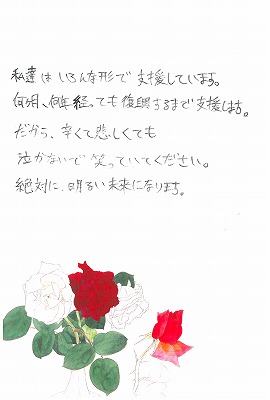 私達はいろんな形で支援しています。
何ヶ月、何年経っても復興するまで支援します。
だから、辛くて悲しくても
泣かないで笑っていてください。
絶対に、明るい未来になります。